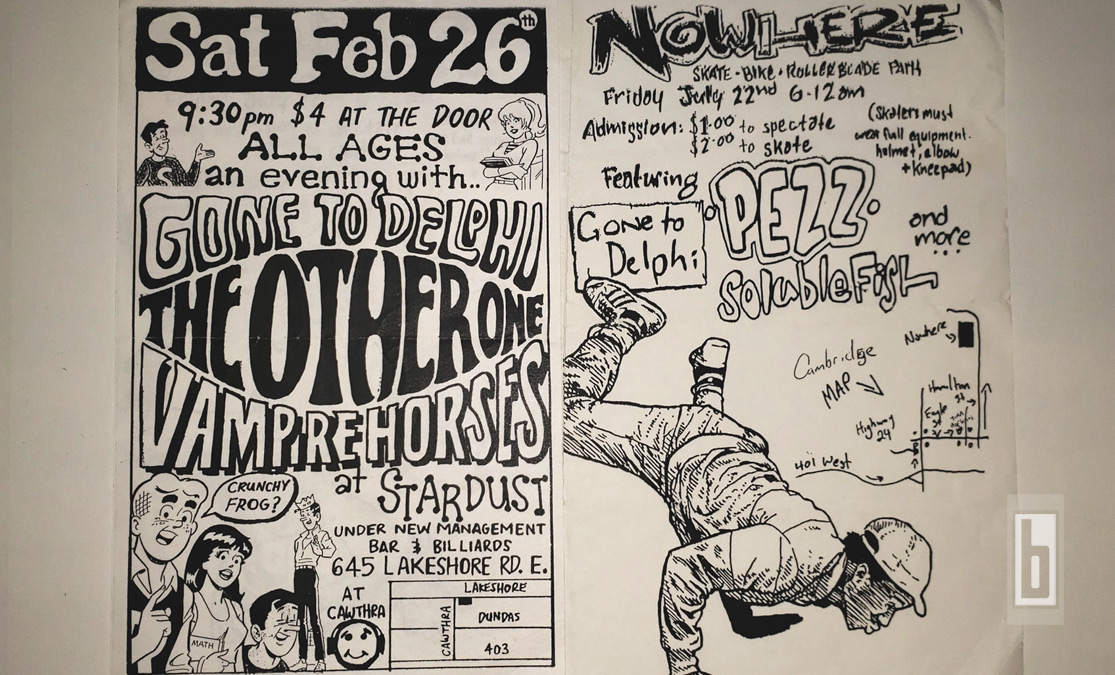 Sat Feb 26th
9:30pm $4 AT THE DOOR
ALL AGES
an evening with..
GONE TO DELPHI
THE OTHER ONE
VAMPIRE HORSES
at STARDUST
CRUNCHY
FROG?
UNDER NEW MANAGEMENT
BAR & BILLIARDS
645 LAKESHORE RD. E.
AT
CAWTHRA
LAKESHORE
CAWTHRA
DUNDAS
403
MATH
NOWHERE
SKATE - BIKE - ROLLERBLADE PARK
Friday July 22nd 6-12am
Admission: $1.00 to spectate
$2.00 to skate
(Skaters must
wear full equipment.
helmet, elbow
+ kneepad)
Featuring
Gone to
Delphi
PEZZ
and
more...
Soluble Fish
Cambridge
MAP
Nowhere
Hamilton
St
Eagle
St
Highway
24
401 West
b